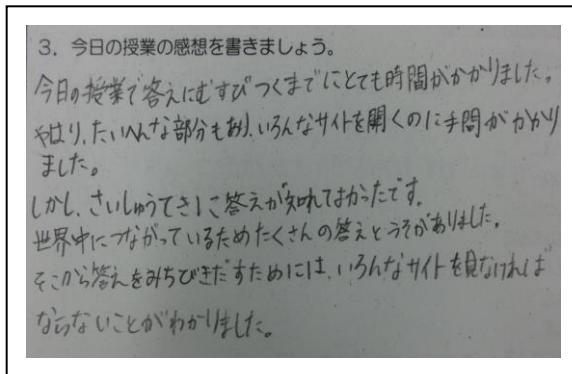 3. 今日の授業の感想を書きましょう。
今日の授業で答えにむすびつくまでにとても時間がかかりました。
やはり、たいへんな部分もあり、いろんなサイトを開くのに手間がかかり
ました。
しかし、さいしゅうてきに答えが知れてよかったです。
世界中につながっているためたくさんの答えとうそがありました。
そこから答えをみちびきだすためには、いろんなサイトを見なければ
ならないことがわかりました。